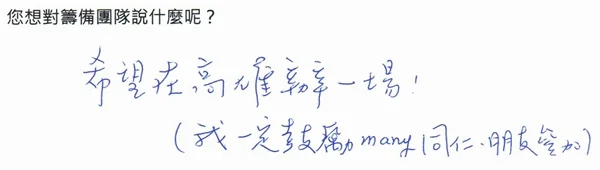 您想對籌備團隊說什麼呢？
希望在高雄辦一場！
（我一定鼓勵many同仁、朋友參加）